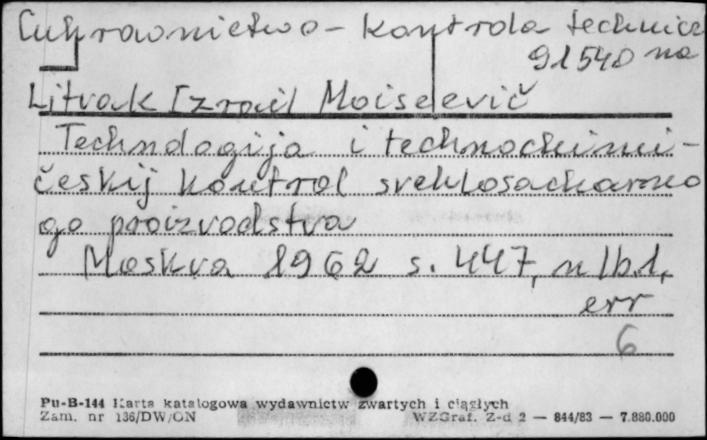 Cukrownictwo - kontrola technicz
91540 na
Litvak Izrail Moiseevič
Technologija i technochimi-
českij kontrol sveklosacharno
go proizvodstva
Moskva 1962 s. 447, nlb.1,
err
6
Pu-B-144 Karta katalogowa wydawnictw zwartych i ciągłych
Zam. nr 136/DW/ON WZGraf. Z-d 2 — 844/83 — 7.880.000